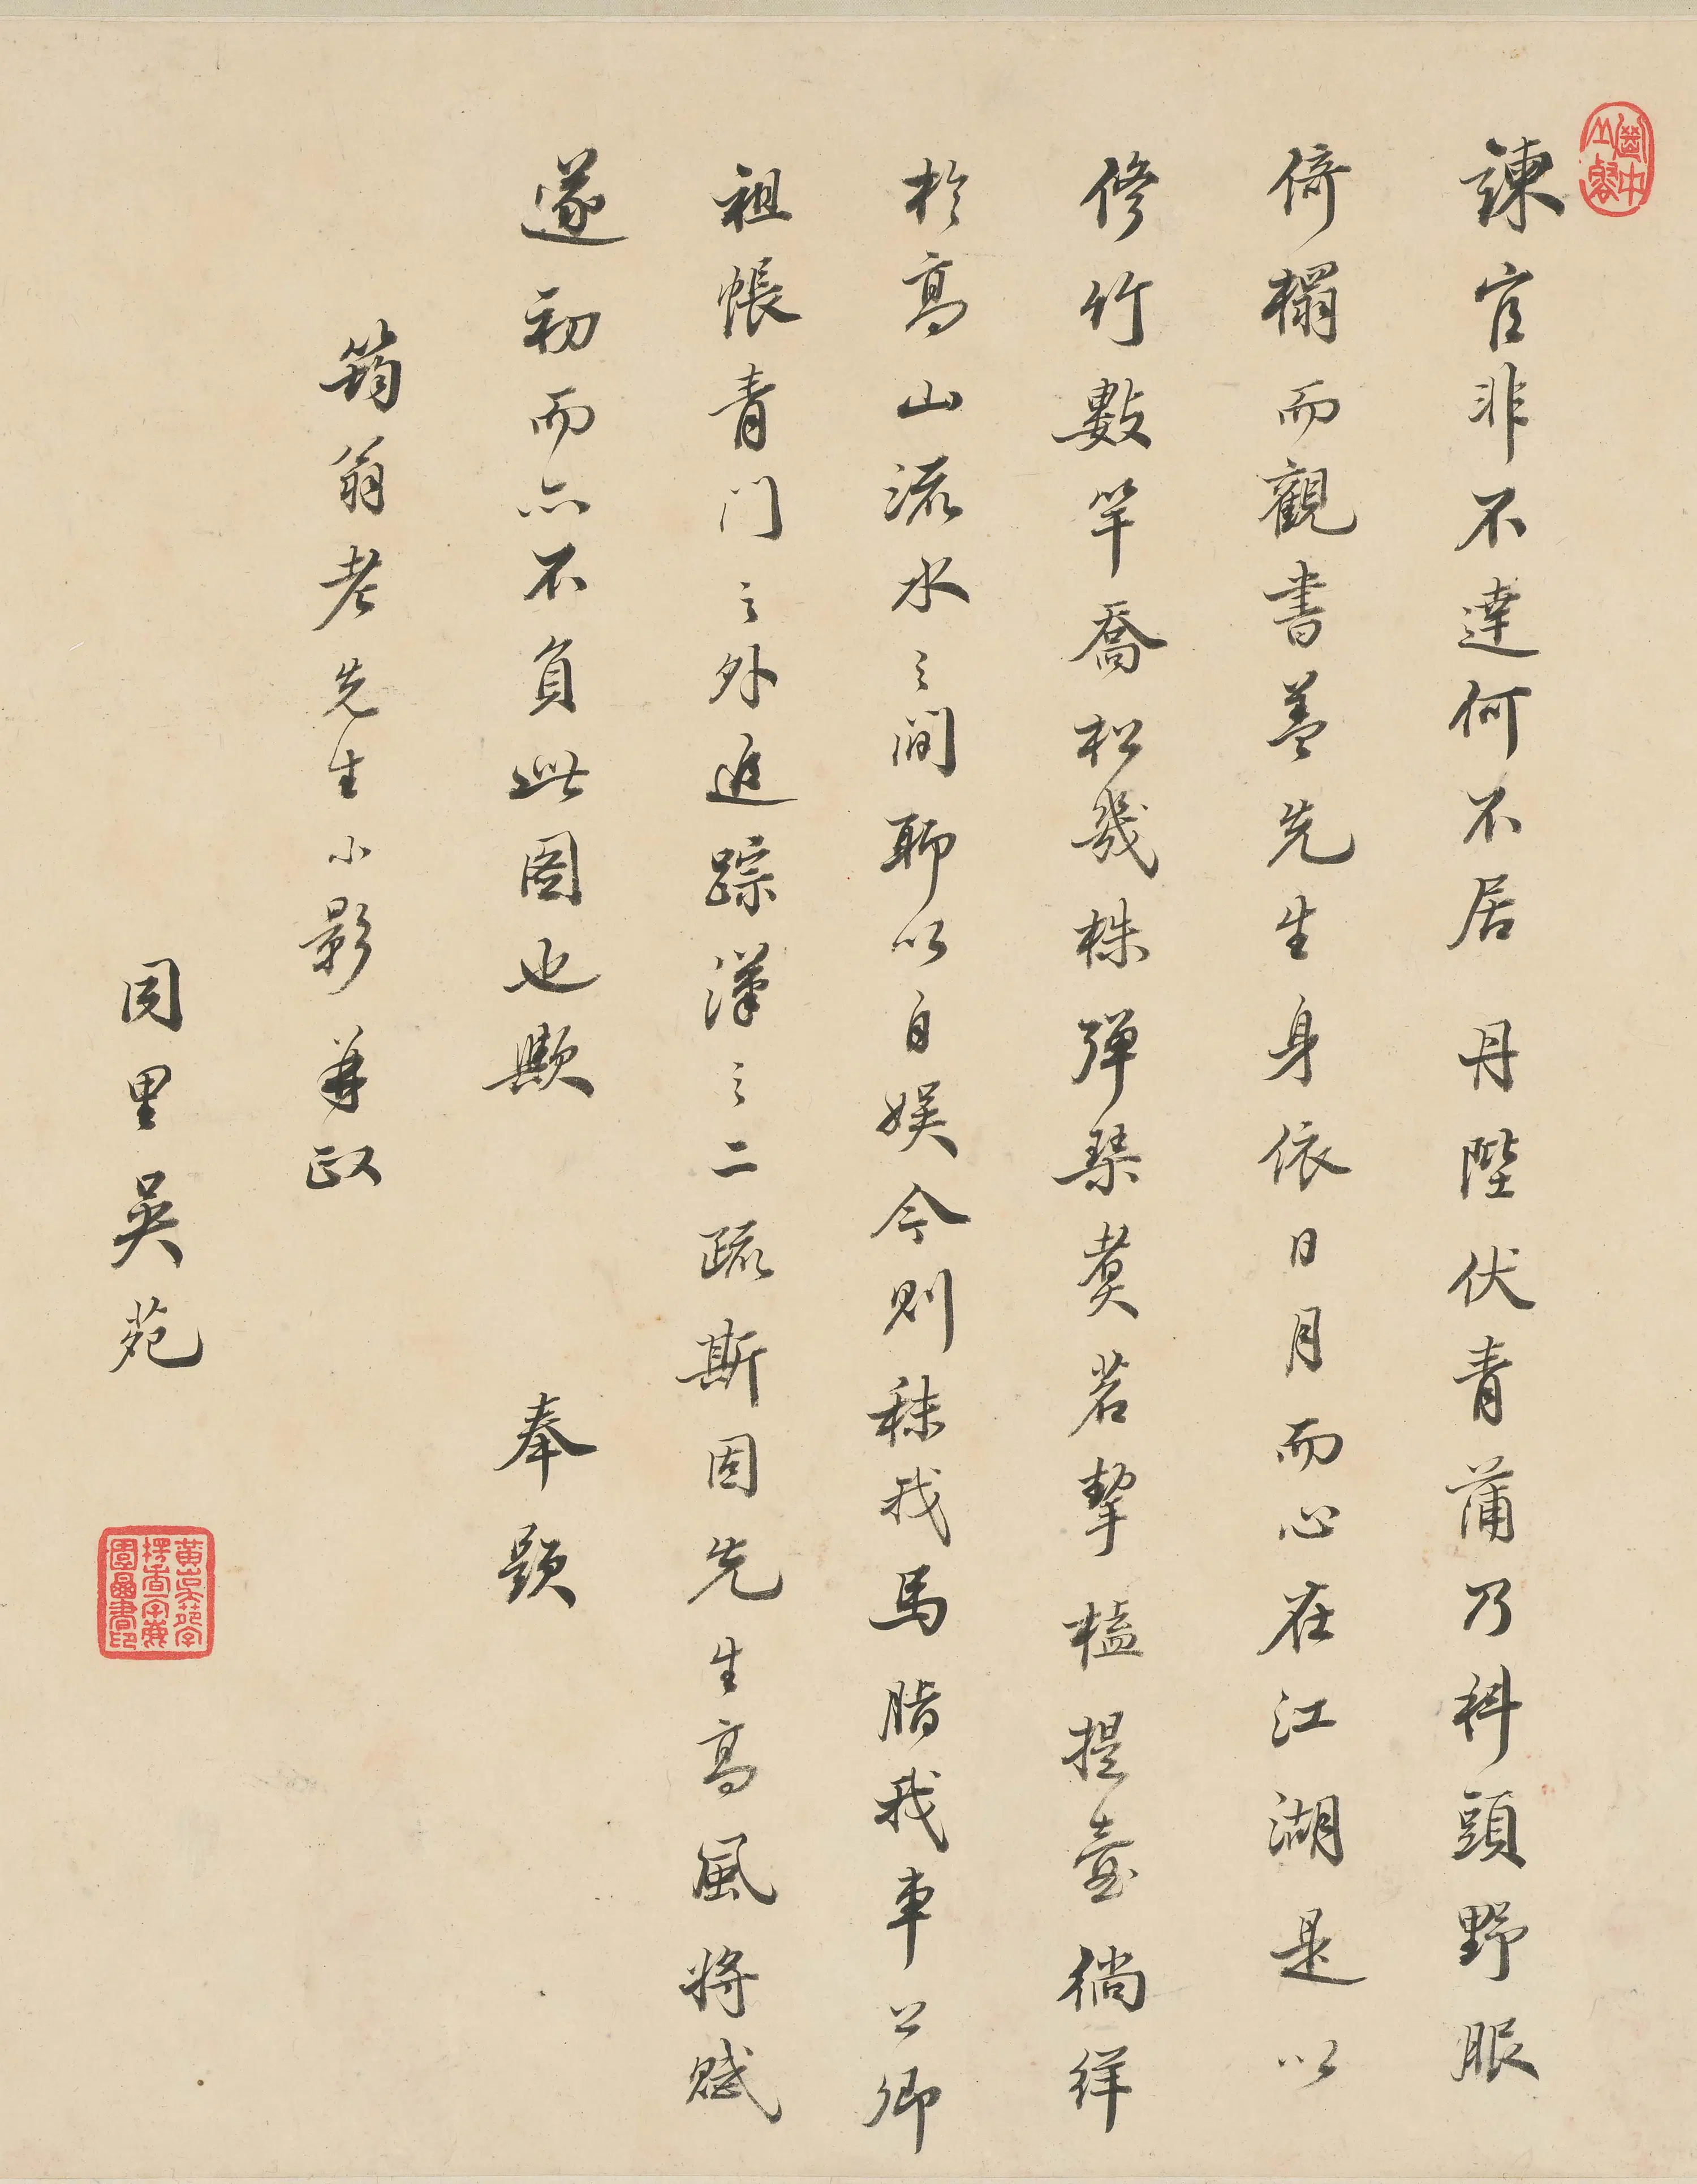 諫官非不達何不居丹陛伏青蒲乃科頭野服
倚榻而觀書盖先生身依日月而心在江湖是以
修竹數竿喬松幾株彈琴煑茗挈榼提壺徜徉
於高山流水之間聊以自娱今則秣我馬脂我車公卿
祖帳青门之外追踪漢之二疏斯固先生高風将賦
遂初而亦不負此圖也歟 奉題
筠翁老先生小影并政
同里吳苑